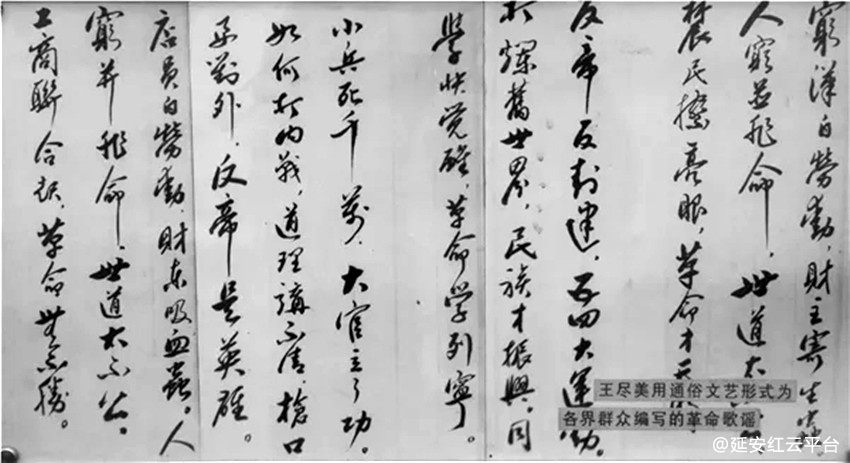 窮漢白勞動,財主寄生蟲。
人窮並非命,世道太
農民擦亮眼,革命才
反帝反封建,五四大運動。
打爛舊世界,民族才振興。同
學快觉醒,革命学列寧。
小兵死千萬,大官立了功。
如何打內戰,道理講不清,槍口
要對外,反帝是英雄。
店員白勞動,財東吸血蟲。人
窮并非命,世道太不公。
工商聯合起,革命無不勝。
王尽美用通俗文艺形式为
各界群众编写的革命歌谣
@延安红云平台